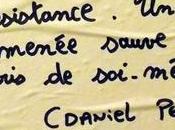 sistance. Un
menée sauve
ris de soi-mê
(Daniel Pe